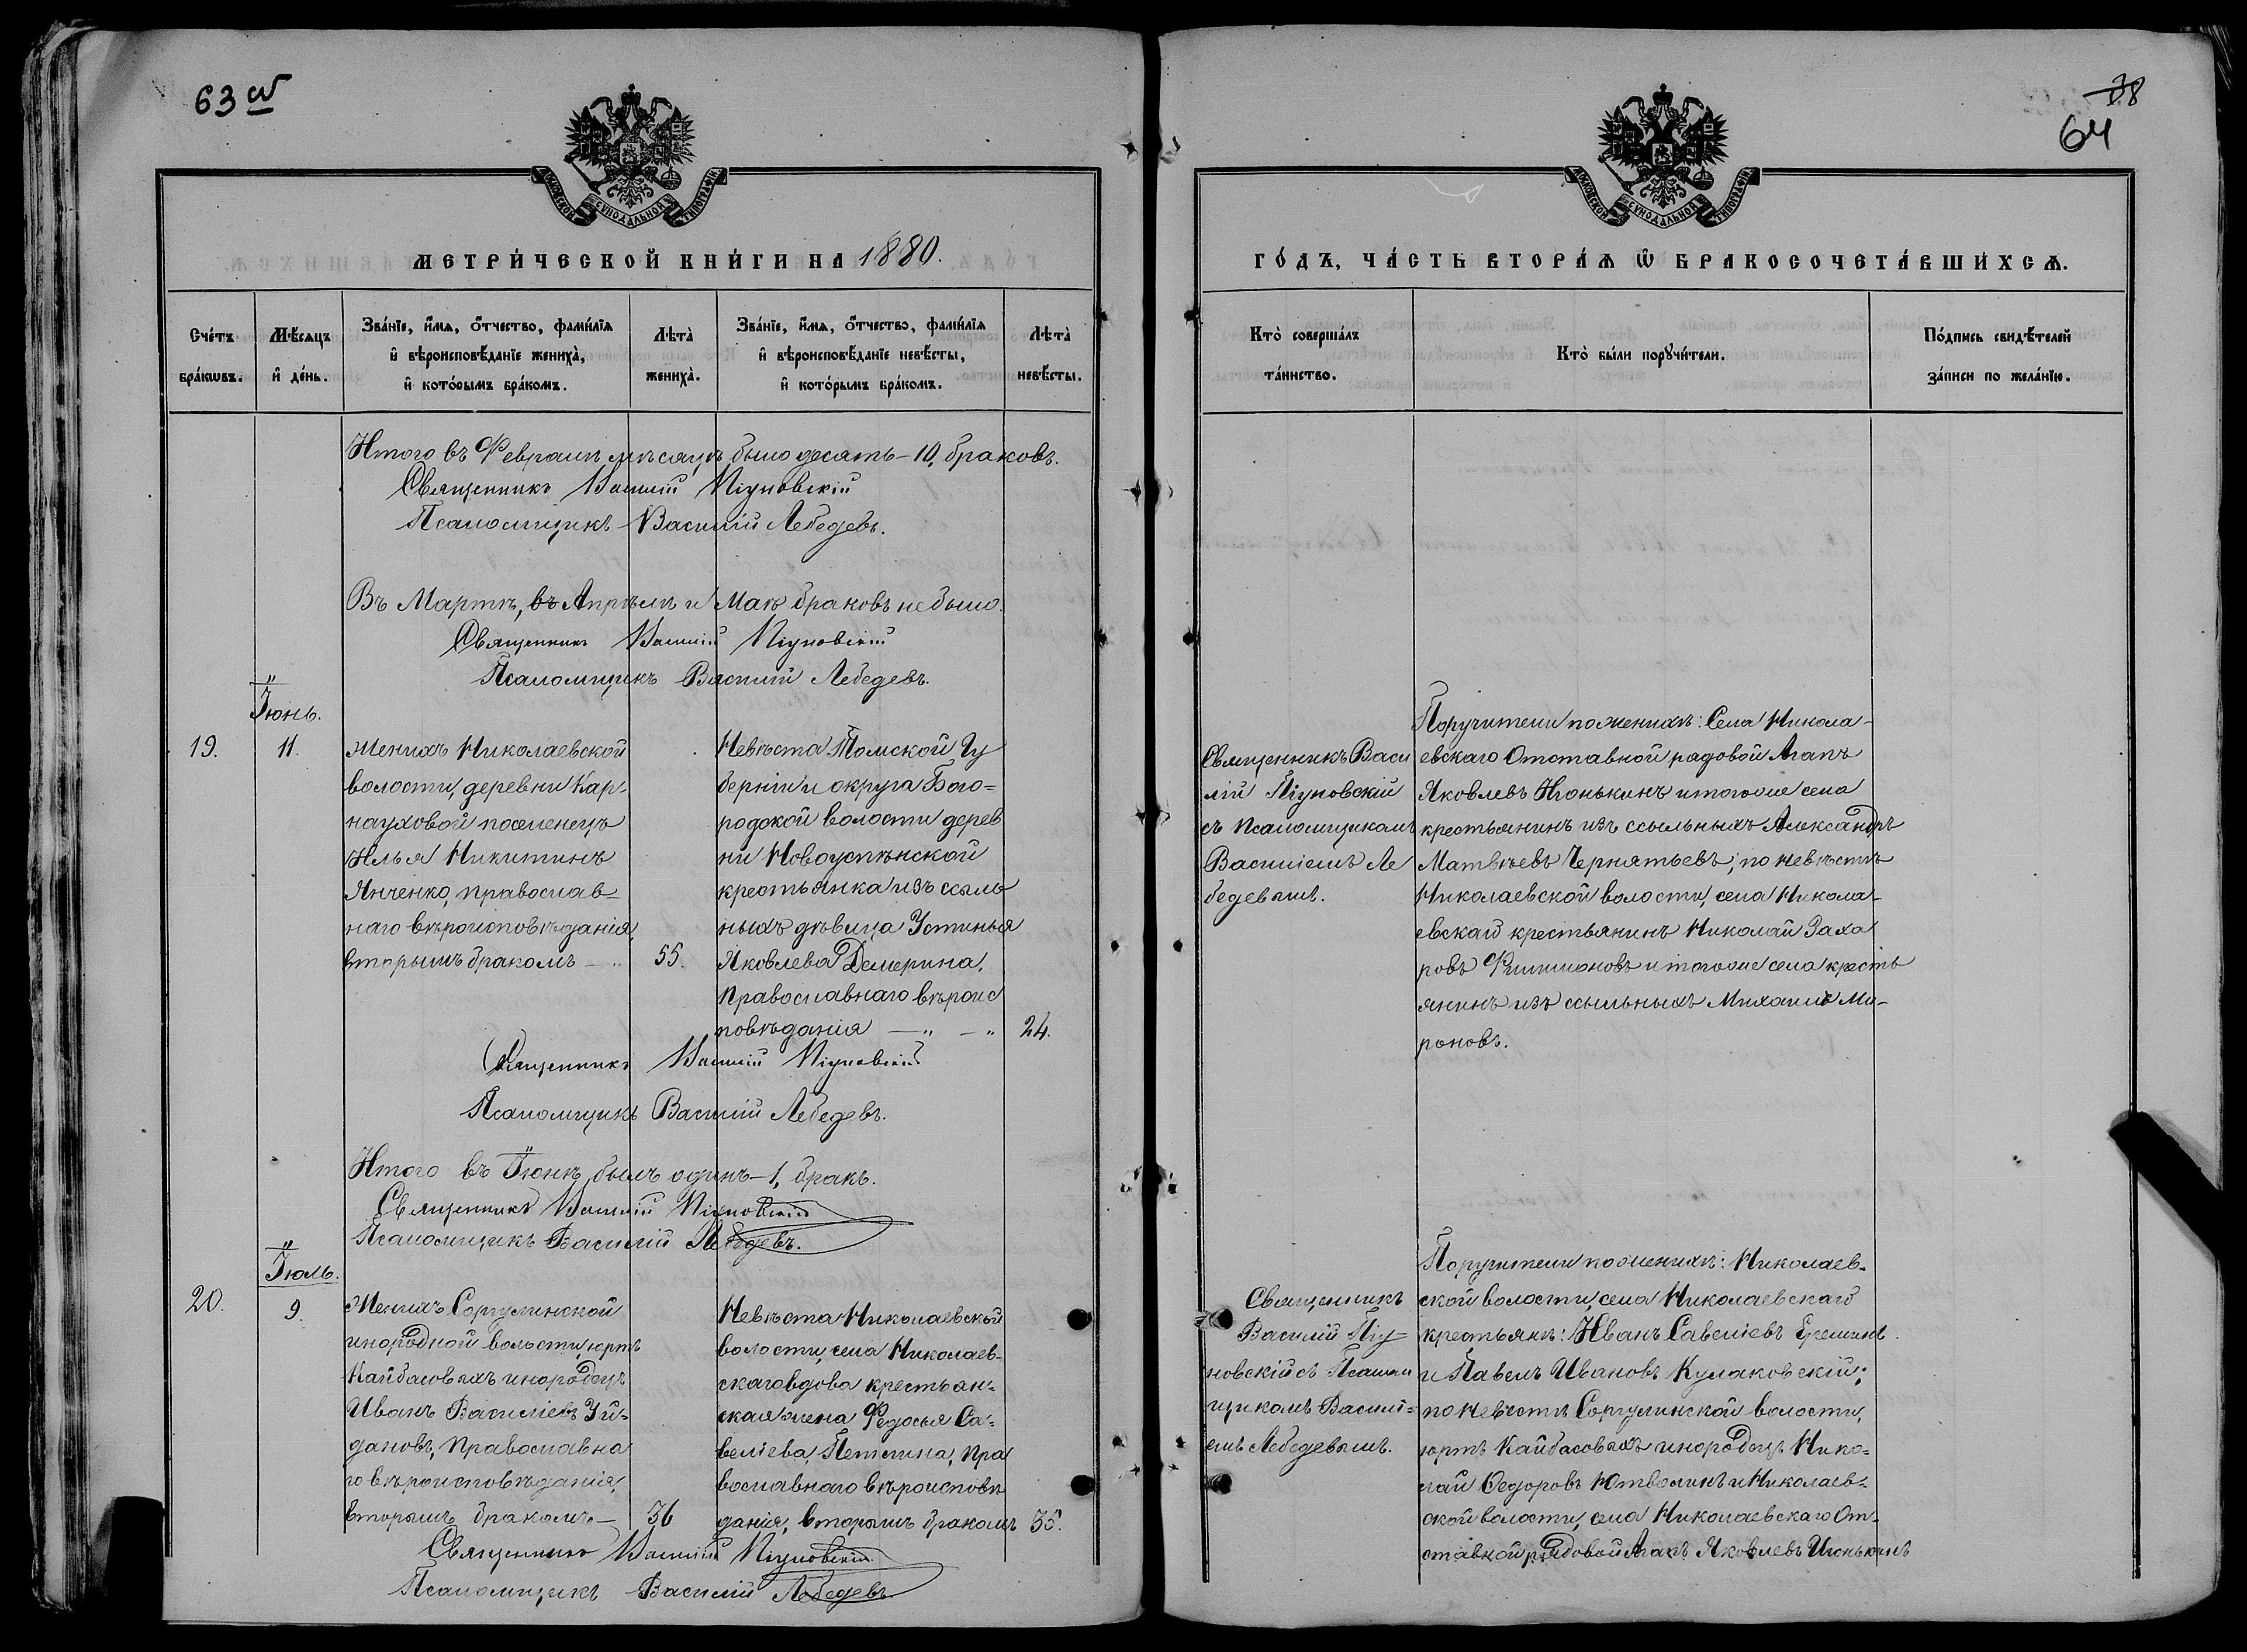 63 об
МОСКОВСКОЙ СѴНОДАЛЬНОЙ ТИПОГРАФІИ
МЕТРИ́ЧЕСКОЙ КНИ́ГИ НА 1880.
Сче́тъ бра́кωвъ.
Мѣ́сяцъ и҆ де́нь.
Зва́нїе, и҆́мѧ, ѻ҆́тчество, фами́лїѧ
и҆ вѣроисповѣ́данїе жениха̀,
и҆ кото́рымъ бра́комъ.
Лѣта̀ жениха̀.
Зва́нїе, и҆́мѧ, ѻ҆́тчество, фами́лїѧ
и҆ вѣроисповѣ́данїе невѣ́сты,
и҆ кото́рымъ бра́комъ.
Лѣта̀ невѣ́сты.
Итого въ Февралѣ мѣсяцѣ было десять – 10, браковъ.
Священникъ Василій Піуновскій
Псаломщикъ Василій Лебедевъ.
Въ Мартѣ, въ Апрѣлѣ и Маѣ браковъ не было.
Священникъ Василій Піуновскій
Псаломщикъ Василій Лебедевъ.
Іюнь.
19.
11.
Женихъ Николаевской
волости, деревни Кар-
науховой поселенецъ
Илья Никитинъ
Янченко, православ-
наго вѣроисповѣданія,
вторымъ бракомъ –
55.
Невѣста Томской Гу
берніи и округа Бого-
родской волости дерев
ни Новоуспѣнской
крестьянка изъ ссыль
ныхъ дѣвица Устинья
Яковлева Демерина,
Православнаго вѣроис
повѣданія – „ – „
24.
Священникъ Василій Піуновскій
Псаломщикъ Василій Лебедевъ.
Итого въ Іюнѣ былъ одинъ – 1, бракъ.
Священникъ Василій Піуновскій
Псаломщикъ Василій Лебедевъ.
Іюль.
20.
9.
Женихъ Соргулинской
инородной волости, юртъ
Кайбасовыхъ инородецъ
Иванъ Василіевъ Уй-
дановъ, Православна
го вѣроисповѣданія,
вторымъ бракомъ –
36
Невѣста Николаевской
волости, села Николаев-
скаго вдова крестьян-
ская жена Федосья Са-
веліева, Петелина, Пра
вославнаго вѣроисповѣ
данія, вторымъ бракомъ
35.
Священникъ Василій Піуновскій
Псаломщикъ Василій Лебедевъ
64
МОСКОВСКОЙ СѴНОДАЛЬНОЙ ТИПОГРАФІИ
ГО́ДЪ, ЧА́СТЬ ВТОРА́Ѧ Ѽ БРАКОСОЧЕТА́ВШИ́ХСѦ.
Кто̀ соверша́лъ та́инство.
Кто̀ бы́ли порꙋчи́тели.
По́дпись свидѣ́телей за́писи по жела́нїю.
Поручители по женихѣ: Села Никола-
евскаго Отставной рядовой Агапъ
Яковлевъ Июнькинъ и тогоже села
крестьянинъ изъ ссыльныхъ Александръ
Матвѣевъ Чернятьевъ; по невѣстѣ
Николаевской волости, села Никола-
евскаго крестьянинъ Николай Заха
ровъ Филимоновъ и тогоже села кресть
янинъ изъ ссыльныхъ Михаилъ Ми-
роновъ.
Священникъ Васи
лій Піуновскій
съ псаломщикомъ
Василіемъ Ле
бедевымъ.
Поручители по женихѣ: Николаев-
ской волости, села Николаевскаго
крестьяне: Иванъ Савеліевъ Ереминъ
и Павелъ Ивановъ Кулаковскій;
по невѣстѣ Соргулинской волости,
юртъ Кайбасовыхъ инородецъ Нико-
лай Ѳедоровъ Ютволинъ и Николаев-
ской волости, села Николаевскаго От-
ставной рядовой Агапъ Яковлевъ Июнькинъ
Священникъ
Василій Піу
новскій съ Псалом
щикомъ Василі-
емъ Лебедевымъ.